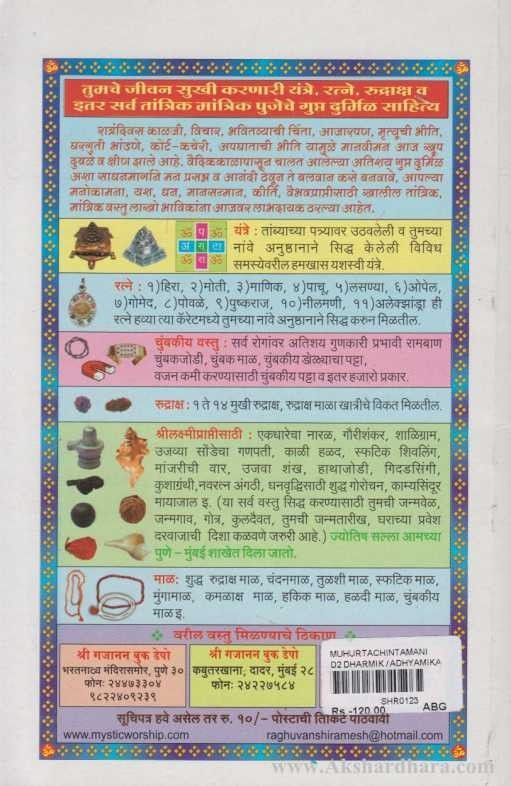 तुमचे जीवन सुखी करणारी यंत्रे, रत्ने, रुद्राक्ष व
इतर सर्व तांत्रिक मांत्रिक पुजेचे गुप्त दुर्मिळ साहित्य
रात्रंदिवस काळजी, विचार, भवितव्याची चिंता, आजारपण, मृत्यूची भीति,
घरगुती भांडणे, कोर्ट-कचेरी, अपघाताची भीति यामुळे मानवीमन आज खूप
दुबळे व क्षीण झाले आहे. वैदिककाळापासून चालत आलेल्या अतिशय गुप्त दुर्मिळ
अशा साधनामार्गाने मन प्रसन्न व आनंदी ठेवून ते बलवान कसे बनवावे, आपल्या
मनोकामना, यश, धन, मानसन्मान, कीर्ति, वैभवप्राप्तीसाठी खालील तांत्रिक,
मांत्रिक वस्तु लाखो भाविकांना आजवर लाभदायक ठरल्या आहेत.
ॐ प ॐ
अ ग टा
ॐ रा ॐ
यंत्रे : तांब्याच्या पत्र्यावर उठवलेली व तुमच्या
नांवे अनुष्ठानाने सिद्ध केलेली विविध
समस्येवरील हमखास यशस्वी यंत्रे.
रत्ने : १)हिरा, २)मोती, ३)माणिक, ४)पाचू, ५)लसण्या, ६)ओपेल,
७)गोमेद, ८)पोवळे, ९)पुष्कराज, १०)नीलमणी, ११)अलेक्झांड्रा ही
रत्ने हव्या त्या कॅरेटमध्ये तुमच्या नांवे अनुष्ठानाने सिद्ध करुन मिळतील.
चुंबकीय वस्तु : सर्व रोगांवर अतिशय गुणकारी प्रभावी रामबाण
चुंबकजोडी, चुंबक माळ, चुंबकीय खेळ्याचा पट्टा,
वजन कमी करण्यासाठी चुंबकीय पट्टा व इतर हजारो प्रकार.
रुद्राक्ष : १ ते १४ मुखी रुद्राक्ष, रुद्राक्ष माळा खात्रीचे विकत मिळतील.
श्रीलक्ष्मीप्राप्तीसाठी : एकधारेचा नारळ, गौरीशंकर, शाळिग्राम,
उजव्या सोंडेचा गणपती, काळी हळद, स्फटिक शिवलिंग,
मांजरीची वार, उजवा शंख, हाथाजोडी, गिदडसिंगी,
कुशाग्रंथी,नवरत्न अंगठी, धनवृद्धिसाठी शुद्ध गोरोचन, काम्यसिंदूर
मायाजाल इ. (या सर्व वस्तु सिद्ध करण्यासाठी तुमची जन्मवेळ,
जन्मगाव, गोत्र, कुलदैवत, तुमची जन्मतारीख, घराच्या प्रवेश
दरवाजाची दिशा कळवणे जरुरी आहे.) ज्योतिष सल्ला आमच्या
पुणे – मुंबई शाखेत दिला जातो.
माळ: शुद्ध रुद्राक्ष माळ, चंदनमाळ, तुळशी माळ, स्फटिक माळ,
मुंगामाळ, कमळाक्ष माळ, हकिक माळ, हळदी माळ, चुंबकीय
माळ इ.
वरील वस्तु मिळण्याचे ठिकाण
श्री गजानन बुक डेपो
भरतनाट्य मंदिरासमोर, पुणे ३०
फोन: २४४७३३०४
९८२२४०९२३९
श्री गजानन बुक डेपो
कबुतरखाना, दादर, मुंबई २८
फोनः २४२२७५८४
MUHURTACHINTAMANI
D2 DHARMIK /ADHYAMIKA
SHR0123
Rs -120.00 ABG
सूचिपत्र हवे असेल तर रु. १०/– पोस्टाची तिकिटे पाठवावी
www.mysticworship.com raghuvanshiramesh@hotmail.com
www.Akshardhara.com